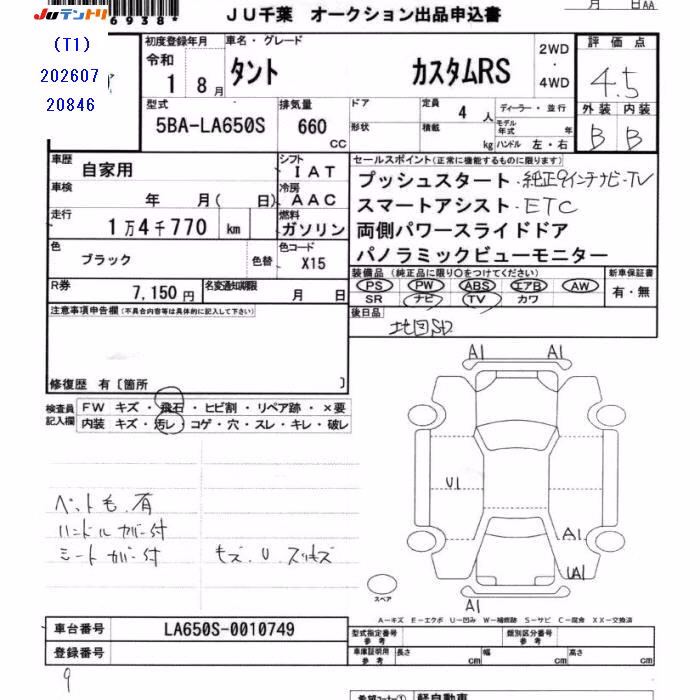 JUテントリ
6938
JU千葉 オークション出品申込書
月 日AA
(T1)
202607
20846
初度登録年月
車名・グレード
評価点
令和
1 8月
タント カスタムRS
2WD
・
4WD
4.5
型式
5BA-LA650S
排気量
660 CC
ドア
形状
定員 4 人
積載 kg
ディーラー・並行
モデル年式 年
ハンドル 左・右
外装 内装
B B
車歴
自家用
シフト
IAT
セールスポイント(正常に機能するものに限ります)
プッシュスタート・純正9インチナビ・TV
スマートアシスト・ETC
両側パワースライドドア
パノラミックビューモニター
車検
年 月( 日)
冷房
AAC
走行
1万4千770 km
燃料
ガソリン
色
ブラック
色替
色コード
X15
装備品(純正品に限り○をつけてください)
PS PW ABS エアB AW
SR ナビ TV カワ
新車保証書
有・無
R券
7,150円
名変通知期限
月 日
後日品
地図SD
注意事項申告欄(不具合内容等は具体的に記入して下さい)
修復歴 有〔箇所 〕
検査員
記入欄
FW キズ・飛石・ヒビ割・リペア跡・×要
内装 キズ・汚レ・コゲ・穴・スレ・キレ・破レ
A1 A1
U1
A1
UA1
A1
ペット毛有
ハンドルカバー付
シートカバー付
キズ.U.スリキズ
スペア
A-キズ E-エクボ U-凹み W-補修跡 S-サビ C-腐食 XX-交換済
車台番号
LA650S-0010749
登録番号
型式指定番号
参考
類別区分番号
参考
車庫証明用
参考
長さ cm
幅 cm
高さ cm
9
希望コーナー①
軽自動車